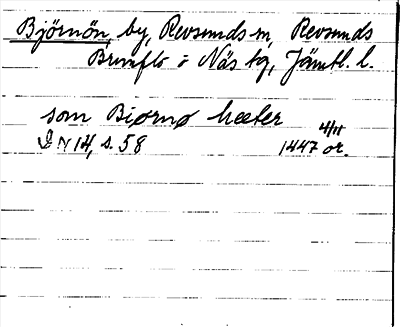 Björnön, by, Revsunds sn, Revsunds
Brunflo o Näs tg, Jämtl. l.
som Biørnø heeter
DN 14, s. 58 1447 4/11 or.